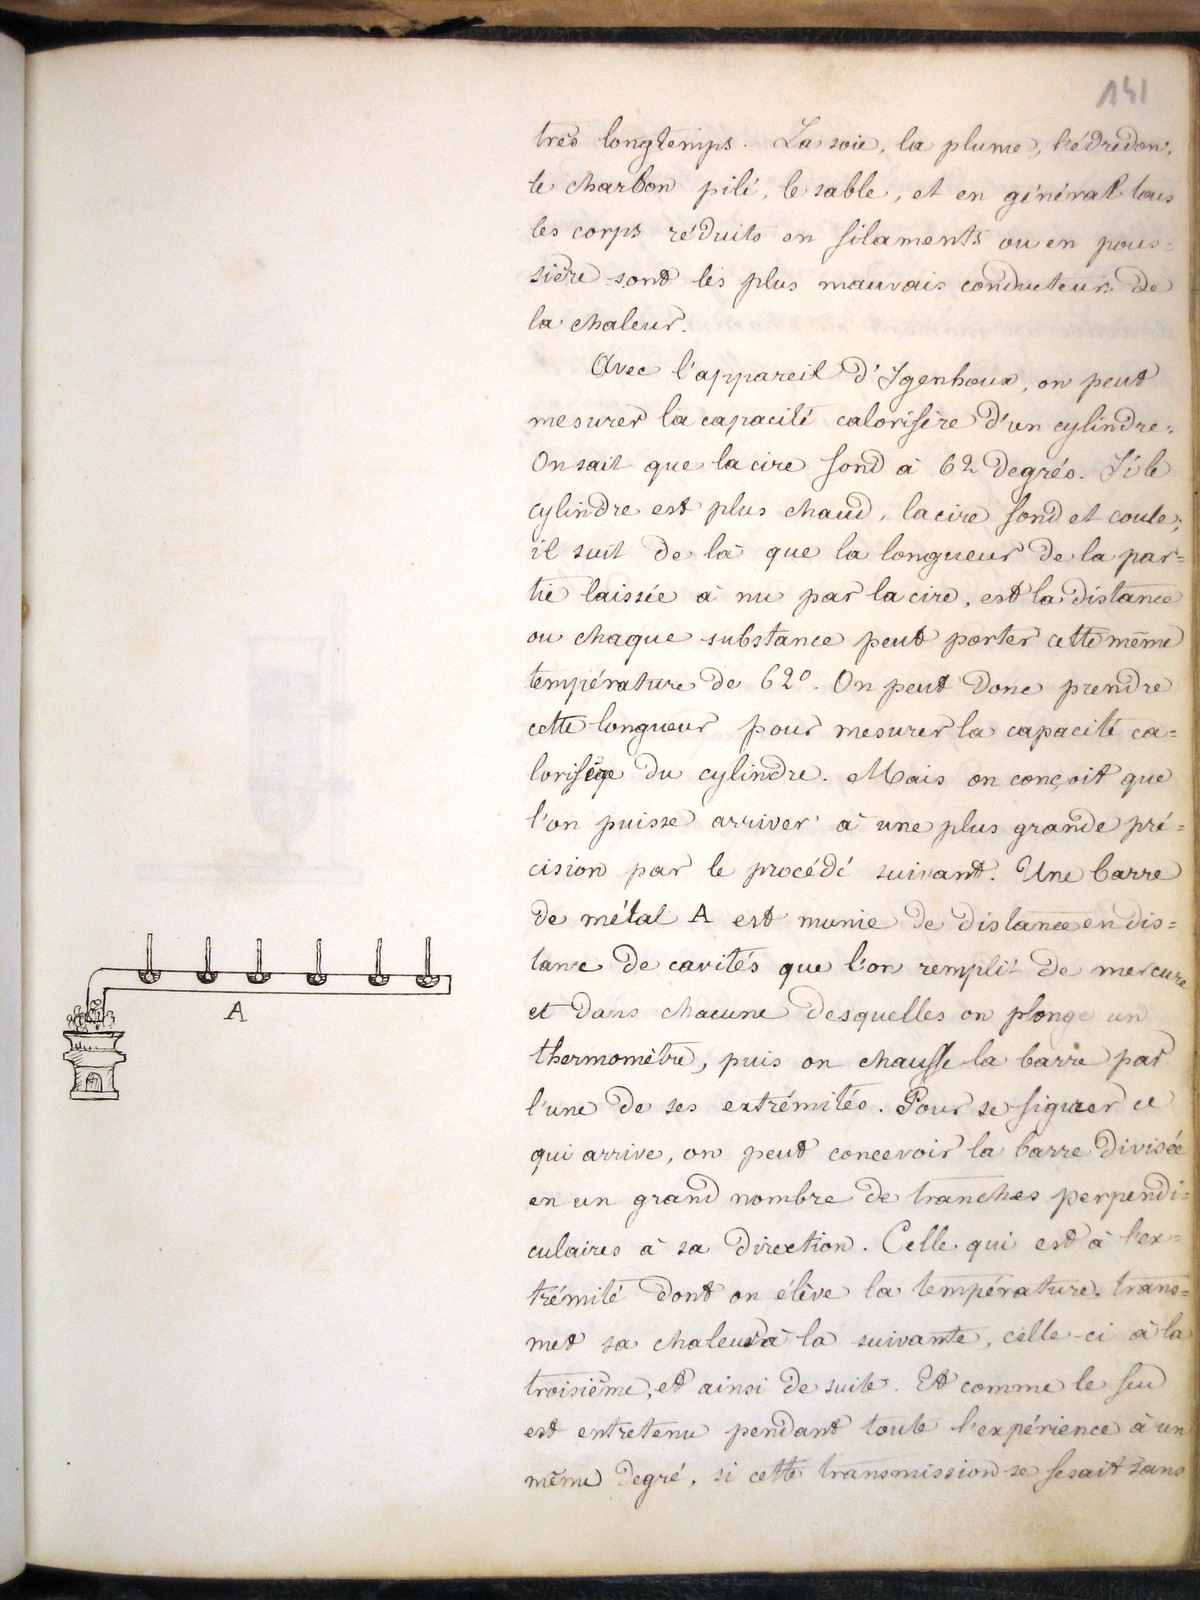 141
très longtemps. La soie, la plume, l'édredon,
le charbon pilé, le sable, et en général tous
les corps réduits en filaments ou en pous=
sière sont les plus mauvais conducteurs de
la chaleur.
Avec l'appareil d'Igenhoux, on peut
mesurer la capacité calorifère d'un cylindre.
On sait que la cire fond à 62 degrés. Si le
cylindre est plus chaud, la cire fond et coule;
il suit de là que la longueur de la par=
tie laissée à nu par la cire, est la distance
ou chaque substance peut porter cette même
température de 62°. On peut donc prendre
cette longueur pour mesurer la capacité ca=
lorifique du cylindre. Mais on conçoit que
l'on puisse arriver à une plus grande pré=
cision par le procédé suivant. Une barre
de métal A est munie de distance en dis=
tance de cavités que l'on remplit de mercure
et dans chacune desquelles on plonge un
thermomètre, puis on chauffe la barre par
l'une de ses extrémités. Pour se figurer ce
qui arrive, on peut concevoir la barre divisée
en un grand nombre de tranches perpendi=
culaires à sa direction. Celle qui est à l'ex=
trémité dont on élève la température, trans=
met sa chaleur à la suivante, celle-ci à la
troisième, et ainsi de suite. Et comme le feu
est entretenu pendant toute l'expérience à un
même degré, si cette transmission se fesait sans
A